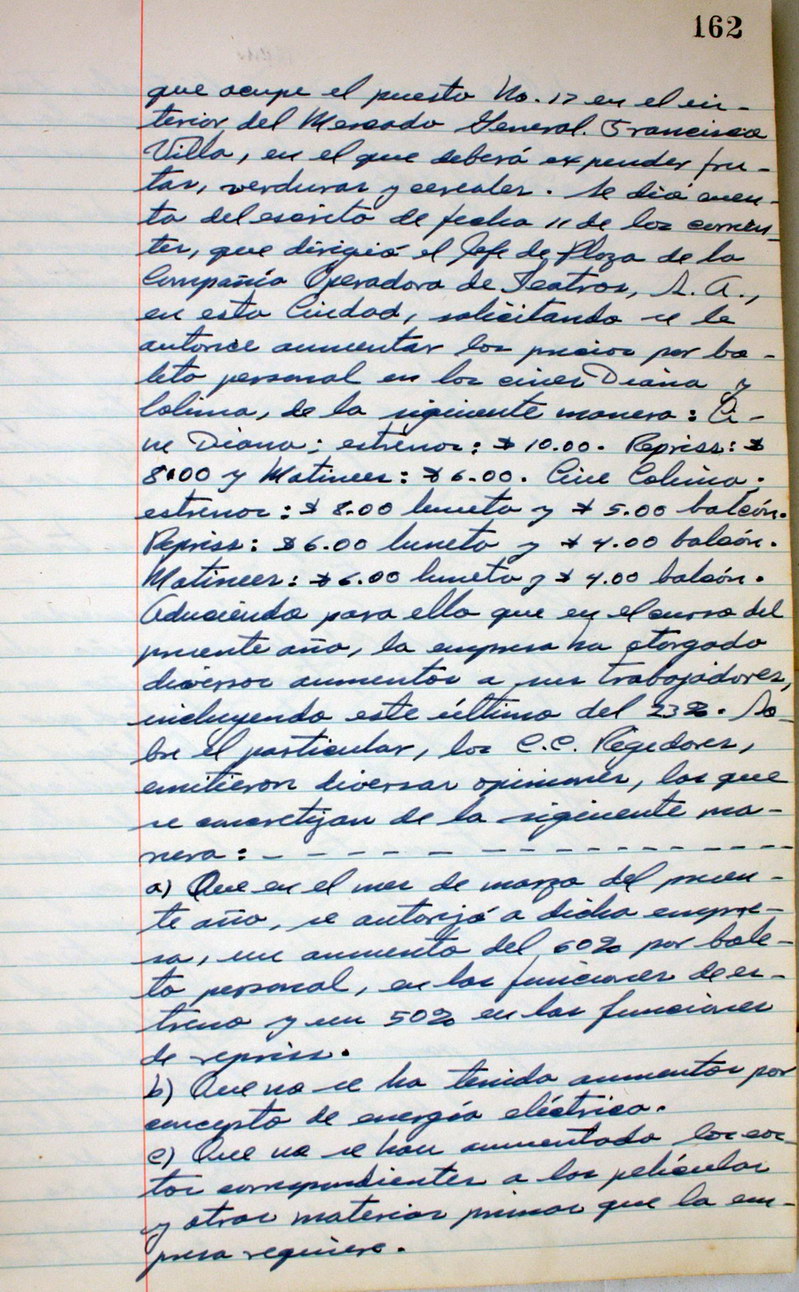 162
que ocupe el puesto No. 17 en el in-
terior del Mercado General Francisco
Villa, en el que deberá expender fru-
tas, verduras y cereales. Se dió cuen-
ta del escrito de fecha 11 de los corrien-
tes, que dirigió el Jefe de Plaza de la
Compañía Operadora de Teatros, S. A.,
en esta Ciudad, solicitando se le
autorice aumentar los precios por bo-
leto personal en los cines Diana y
Colima, de la siguiente manera: Ci-
ne Diana; estrenos: $ 10.00. Repriss: $
8.00 y Matinees: $ 6.00. Cine Colima;
estrenos: $ 8.00 luneta y $ 5.00 balcón.
Repriss: $ 6.00 luneta y $ 4.00 balcón.
Matinees: $ 6.00 luneta y $ 4.00 balcón.
Aduciendo para ello que en el curso del
presente año, la empresa ha otorgado
diversos aumentos a sus trabajadores,
incluyendo este último del 23%. So-
bre el particular, los C.C. Regidores,
emitieron diversas opiniones, las que
se concretizan de la siguiente ma-
nera: - - - - - - - - - - - - - -
a) Que en el mes de marzo del presen-
te año, se autorizó a dicha empre-
sa, un aumento del 60% por bole-
to personal, en las funciones de es-
treno y un 50% en las funciones
de repriss.
b) Que no se ha tenido aumentos por
concepto de energía eléctrica.
c) Que no se han aumentado los cos-
tos correspondientes a las películas
y otras materias primas que la em-
presa requiere.